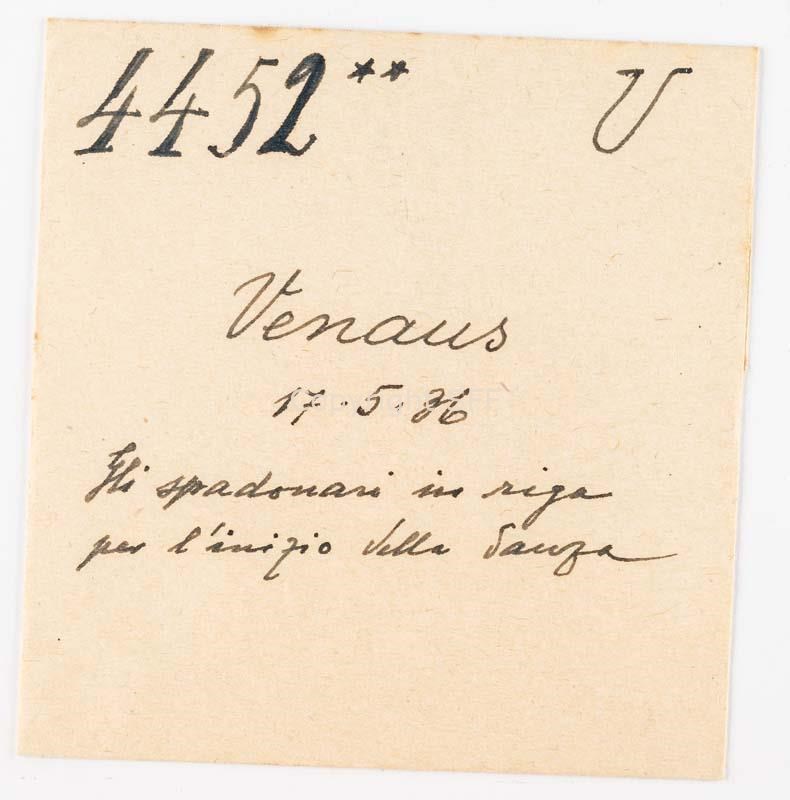 4452** V
Venaus
17.5.36
Gli spadonari in riga
per l'inizio della danza